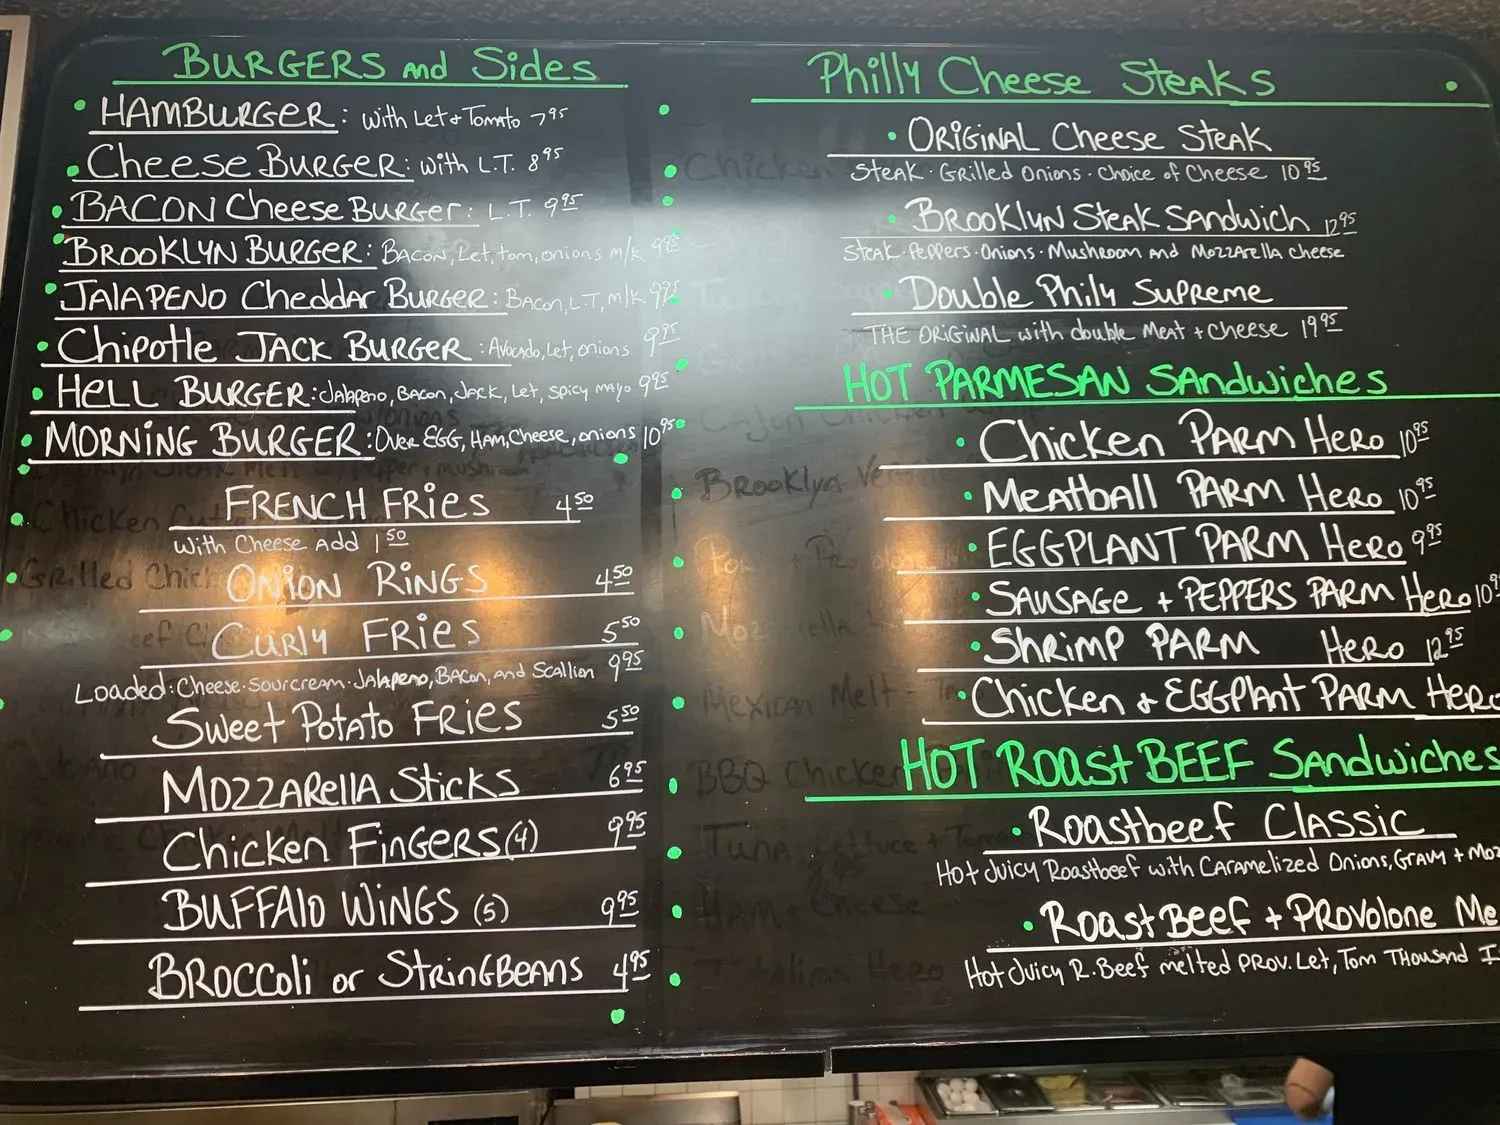 BURGERS and Sides
HAMBURGER: with Let + Tomato 7 95
Cheese BURGER: with L.T. 8 95
BACON Cheese BURGER: L.T. 9 95
BROOKLYN BURGER: BACON, Let, tom, onions m/k 9 95
JALAPENO Cheddar BURGER: BACON, L.T, M/K 9 95
Chipotle JACK BURGER: Avocado, Let, onions 9 95
HELL BURGER: Jalapeno, Bacon, Jack, Let, spicy mayo 9 95
MORNING BURGER: Over EGG, HAM, Cheese, onions 10 95
FRENCH FRIES 4 50
With Cheese Add 1 50
ONION RINGS 4 50
CURLY FRIES 5 50
Loaded: Cheese · Sourcream · Jalapeno, Bacon, and Scallion 9 95
Sweet Potato FRIES 5 50
MOZZARELLA STICKS 6 95
Chicken FINGERS (4) 9 95
BUFFALO WINGS (5) 9 95
BROCCOLI or STRINGBEANS 4 95
Philly Cheese Steaks
ORIGINAL Cheese Steak
Steak · Grilled Onions · Choice of Cheese 10 95
BROOKLYN STEAK SANDWICH 12 95
Steak · Peppers · Onions · Mushroom and Mozzarella cheese
Double Phily Supreme
THE ORIGINAL with double Meat + cheese 19 95
HOT PARMESAN SANDWICHES
Chicken PARM HERO 10 95
Meatball PARM HERO 10 95
EGGPLANT PARM HERO 9 95
SAUSAGE + PEPPERS PARM HERO 10
Shrimp PARM HERO 12 95
Chicken & EGGPlant PARM HERO
HOT ROAST BEEF Sandwiches
Roastbeef Classic
Hot Juicy Roastbeef with Caramelized Onions, Gravy + Moz
Roast Beef + Provolone Me
Hot Juicy R. Beef melted Prov. Let, Tom Thousand I